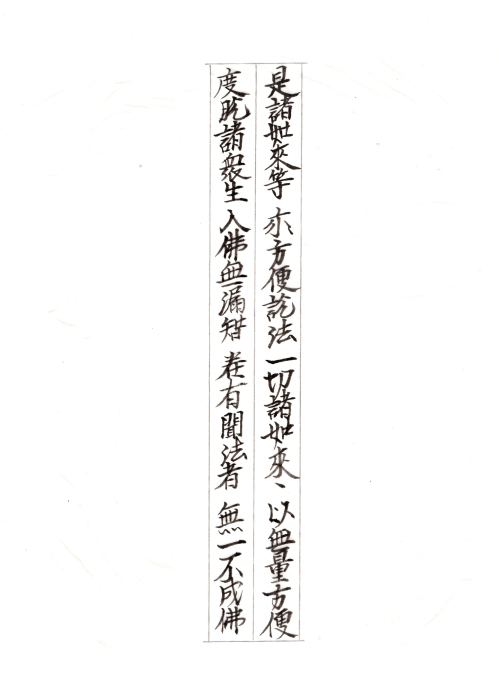 是諸如來等 亦方便說法 一切諸如來、以無量方便
度脫諸衆生 入佛無漏智 若有聞法者 無一不成佛